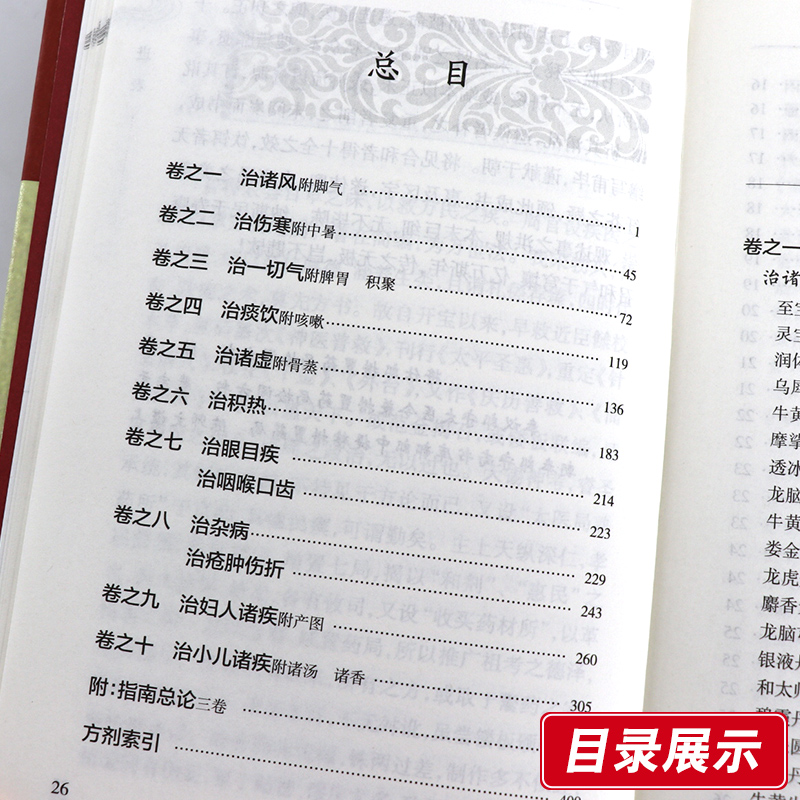 总 目
卷之一 治诸风附脚气 …… 1
卷之二 治伤寒附中暑 …… 45
卷之三 治一切气附脾胃 积聚 …… 72
卷之四 治痰饮附咳嗽 …… 119
卷之五 治诸虚附骨蒸 …… 136
卷之六 治积热 …… 183
卷之七 治眼目疾 …… 214
治咽喉口齿 …… 223
卷之八 治杂病 …… 229
治疮肿伤折 …… 243
卷之九 治妇人诸疾附产图 …… 260
卷之十 治小儿诸疾附诸汤 诸香 …… 305
附：指南总论三卷
方剂索引
26
卷之一
治诸
至宝
灵宝
润体
乌犀
牛黄
摩挲
透冰
龙脑
牛黄
娄金
龙虎
麝香
龙脑
银液丹
和太师
碧霞丹
目录展示